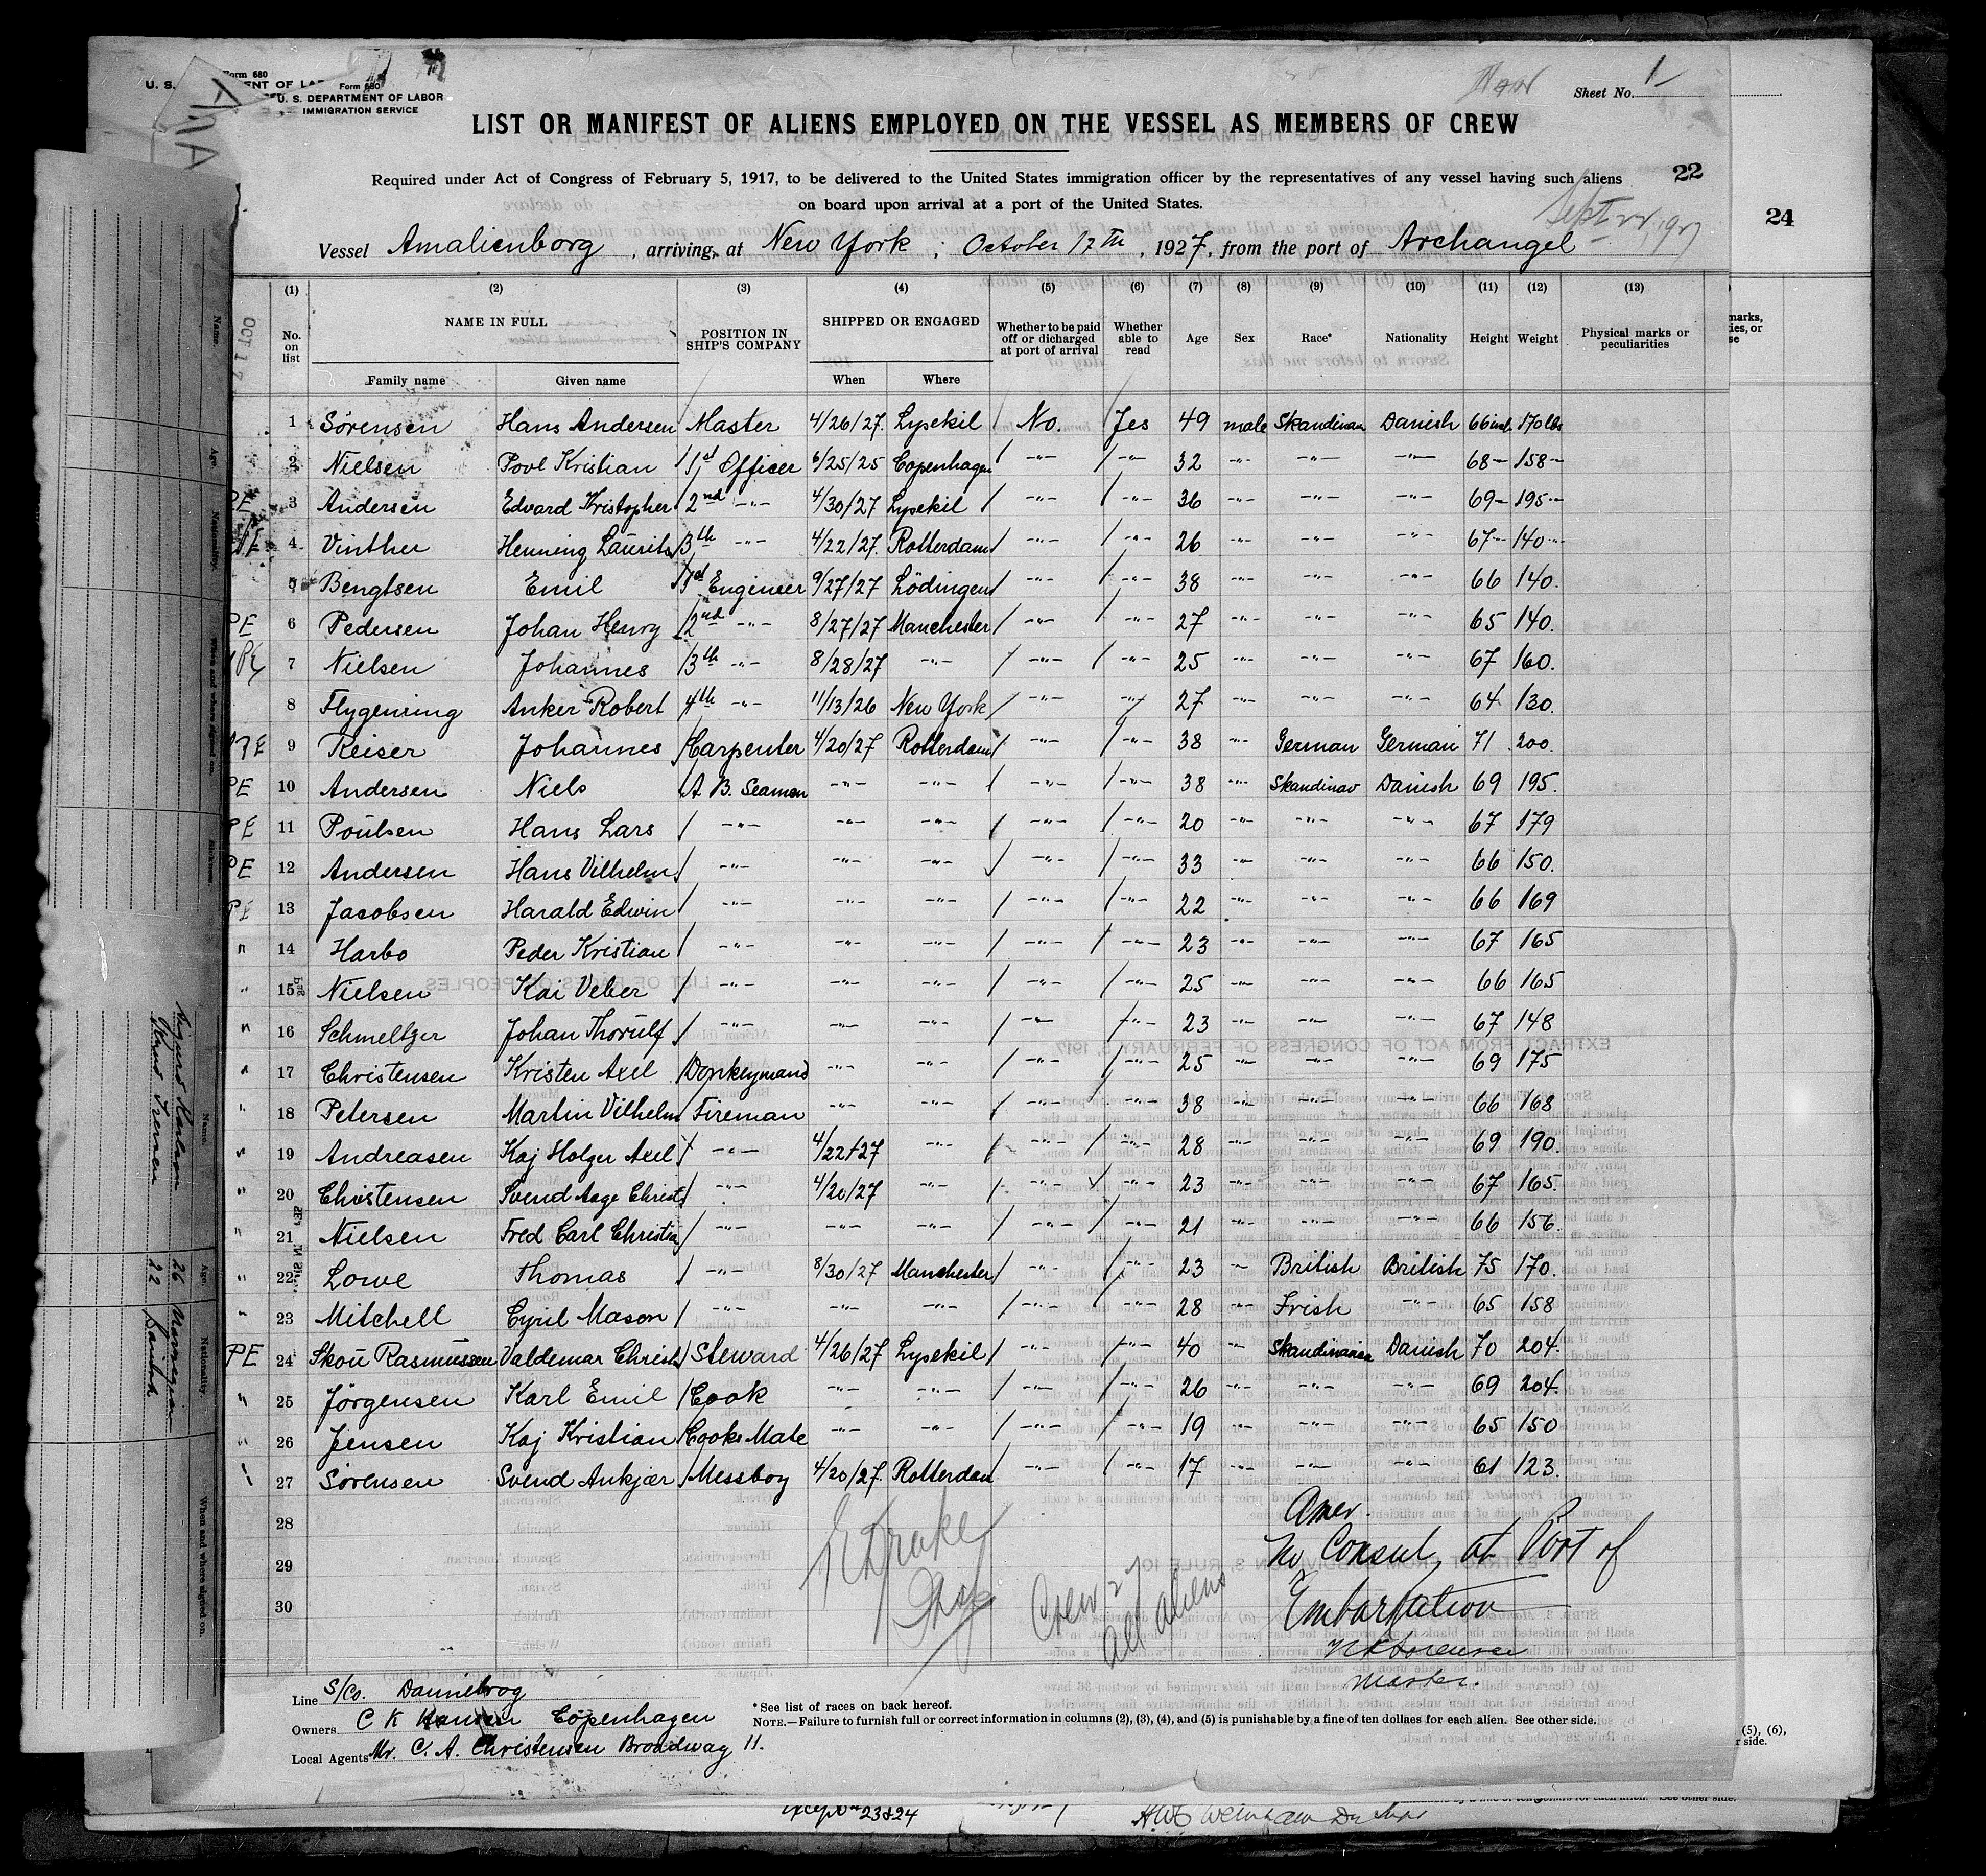 Form 680
U. S. DEPARTMENT OF LABOR
IMMIGRATION SERVICE
Sheet No. 1
LIST OR MANIFEST OF ALIENS EMPLOYED ON THE VESSEL AS MEMBERS OF CREW
Required under Act of Congress of February 5, 1917, to be delivered to the United States immigration officer by the representatives of any vessel having such aliens
on board upon arrival at a port of the United States.
22
24
Vessel Amalienborg, arriving at New York, October 17th, 1927, from the port of Archangel
(1) (2) (3) (4) (5) (6) (7) (8) (9) (10) (11) (12) (13)
No. on list NAME IN FULL Family name Given name POSITION IN SHIP'S COMPANY SHIPPED OR ENGAGED When Where Whether to be paid off or dicharged at port of arrival Whether able to read Age Sex Race* Nationality Height Weight Physical marks or peculiarities
1 Sörensen Hans Andersen Master 4/26/27. Lysekil No. Yes 49 male Skandinav Danish 66 inch. 170 lbs
2 Nielsen Povl Kristian 1st Officer 6/25/25 Copenhagen -"- -"- 32 -"- -"- -"- 68 158
PE 3 Andersen Edvard Kristopher 2nd -"- 4/30/27 Lysekil -"- -"- 36 -"- -"- -"- 69 195
4 Vinther Henning Laurits 3th -"- 4/22/27. Rotterdam -"- -"- 26 -"- -"- -"- 67 140
5 Bengtsen Emil 1st Engineer 9/27/27 Lödingen -"- -"- 38 -"- -"- -"- 66 140.
PE 6 Pedersen Johan Henry 2nd -"- 8/27/27 Manchester -"- -"- 27 -"- -"- -"- 65 140.
7 Nielsen Johannes 3th -"- 8/28/27 -"- -"- -"- 25 -"- -"- -"- 67 160.
8 Flygenring Anker Robert 4th -"- 11/13/26 New York -"- -"- 27 -"- -"- -"- 64 130.
9 Keiser Johannes Carpenter 4/20/27 Rotterdam -"- -"- 38 -"- German German 71 200.
PE 10 Andersen Niels A. B. Seaman -"- -"- -"- -"- 38 -"- Skandinav Danish 69 195.
PE 11 Poulsen Hans Lars -"- -"- -"- -"- -"- 20 -"- -"- -"- 67 179
PE 12 Andersen Hans Vilhelm -"- -"- -"- -"- -"- 33 -"- -"- -"- 66 150.
PE 13 Jacobsen Harald Edwin -"- -"- -"- -"- -"- 22 -"- -"- -"- 66 169
" 14 Harbo Peder Kristian -"- -"- -"- -"- -"- 23 -"- -"- -"- 67 165
" 15 Nielsen Kai Veber -"- -"- -"- -"- -"- 25 -"- -"- -"- 66 165
" 16 Schmeltzer Johan Thorulf -"- -"- -"- -"- -"- 23 -"- -"- -"- 67 148
" 17 Christensen Kristen Axel Donkeymand -"- -"- -"- -"- 25 -"- -"- -"- 69 175
" 18 Petersen Martin Vilhelm Fireman -"- -"- -"- -"- 38 -"- -"- -"- 66 168
" 19 Andreasen Kaj Holger Axel -"- 4/22/27 -"- -"- -"- 28 -"- -"- -"- 69 190.
" 20 Christensen Svend Aage Christ. -"- 4/20/27 -"- -"- -"- 23 -"- -"- -"- 67 165.
" 21 Nielsen Fred Carl Christian -"- -"- -"- -"- -"- 21 -"- -"- -"- 66 156.
" 22 Lowe Thomas -"- 8/30/27 Manchester -"- -"- 23 -"- British British 75 170.
" 23 Mitchell Cyril Mason -"- -"- -"- -"- -"- 28 -"- Irish -"- 65 158
PE 24 Skou Rasmussen Valdemar Christ. Steward 4/26/27 Lysekil -"- -"- 40 -"- Skandinavien Danish 70 204.
" 25 Jörgensen Karl Emil Cook -"- -"- -"- -"- 26 -"- -"- -"- 69 204.
" 26 Jensen Kaj Kristian Cooks Mate -"- -"- -"- -"- 19 -"- -"- -"- 65 150
" 27 Sörensen Svend Ankjær Messboy 4/20/27. Rotterdam -"- -"- 17 -"- -"- -"- 61 123.
28
29
30
Amer.
No Consul at Port of
Embarkation
Sorensen
Master.
Crew 27
all aliens
Line S/Co. Dannebrog
Owners C K Hansen Copenhagen
Local Agents Mr. C. A. Christensen Broadway 11.
*See list of races on back hereof.
NOTE.—Failure to furnish full or correct information in columns (2), (3), (4), and (5) is punishable by a fine of ten dollars for each alien. See other side.
Name. Age. Nationality. When and where signed on.
Sigurd Karlsen 26 Norwegian
Iversen 22 Danish
23 & 24